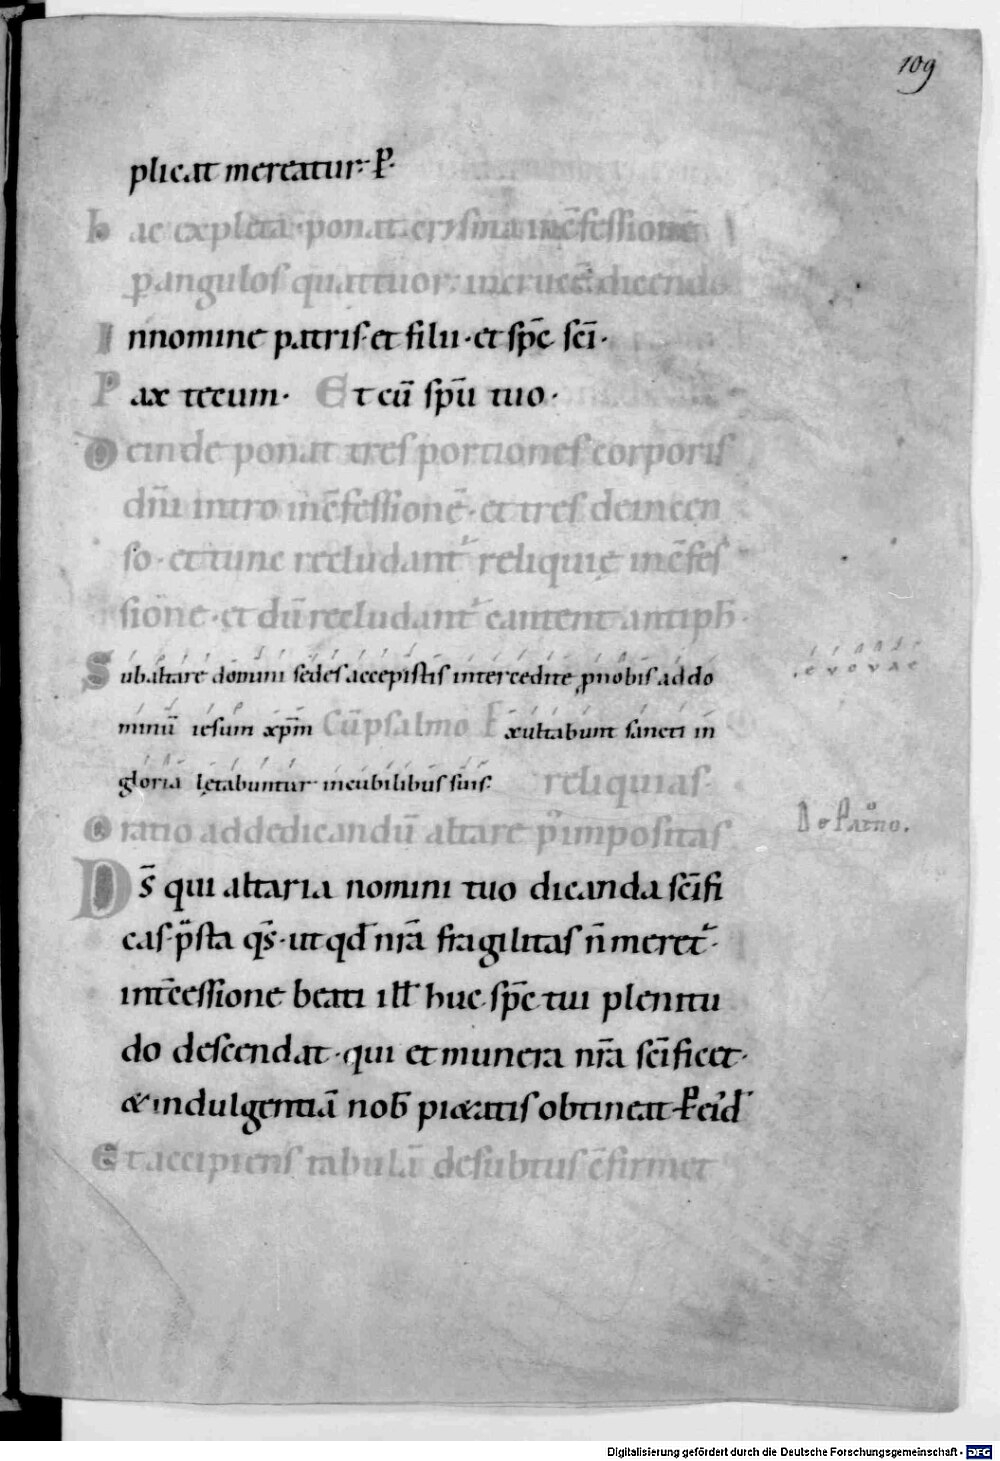 109
plicat mereatur· P̄.
hac expleta·ponat crysma inc̄fessionē
p̱ angulos quattuor· incrucē dicendo
Innomine patris·et filii·et sp̄c sc̄i·
Pax tecum· Et cū sp̄u tuo·
Deinde ponat tres portiones corporis
dn̄i intro inc̄fessionē·et tres deincen
so·et tunc recludant᷑ reliquię inc̄fes
sione·et dū recludant᷑ cantent antiph̄·
Subaltare domini sedes accepistis intercedite p̱nobis addo
e v o v a e
minū iesum xp̄m Cūpsalmo Exultabunt sancti in
gloria lętabuntur incubilibus suis· reliquias·
Oratio addedicandū altare p̄impositas
De Patr̊no.
Ds̄ qui altaria nomini tuo dicanda sc̄ifi
cas·p̄sta qs̄·ut qđ nr̄a fragilitas n̄ meret᷑·
int̄cessione beati ill̄ huc sp̄c tui plenitu
do descendat·qui et munera nr̄a sc̄ificet·
&indulgentiā nob̄ pi&atis obtineat· P̄ eiđ
Et accipiens tabulā desubtus c̄firmet
Digitalisierung gefördert durch die Deutsche Forschungsgemeinschaft - DFG